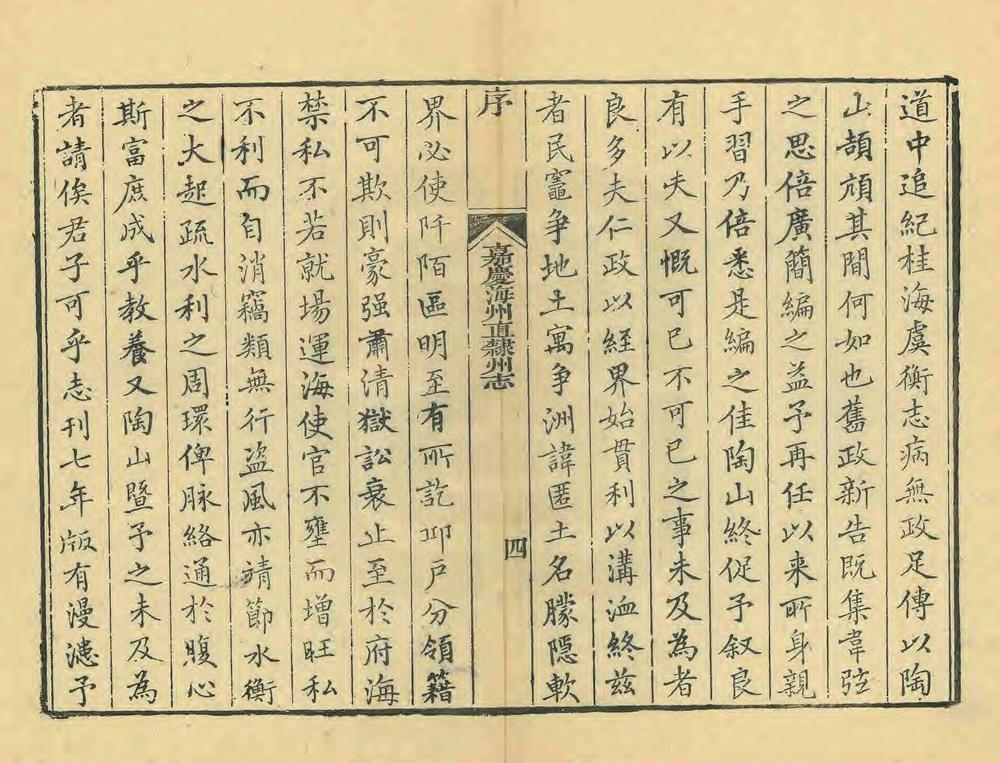 道中追紀桂海虞衡志病無政足傳以陶
山頡頏其間何如也舊政新告既集韋弦
之思倍廣簡編之益予再任以來所身親
手習乃倍悉是編之佳陶山終促予叙良
有以夫又慨可已不可已之事未及為者
良多夫仁政以經界始貫利以溝洫終茲
者民竈争地土寓争洲諱匿土名朦隱軟
序
嘉慶海州直隸州志
四
界必使阡陌區明至有所訖卬戶分領籍
不可欺則豪强肅清獄訟衰止至於府海
禁私不若就場運海使官不壅而增旺私
不利而自消竊類無行盗風亦靖節水衡
之大起疏水利之周環俾脉絡通於腹心
斯富庶成乎教養又陶山暨予之未及為
者請俟君子可乎志刊七年版有漫漶予